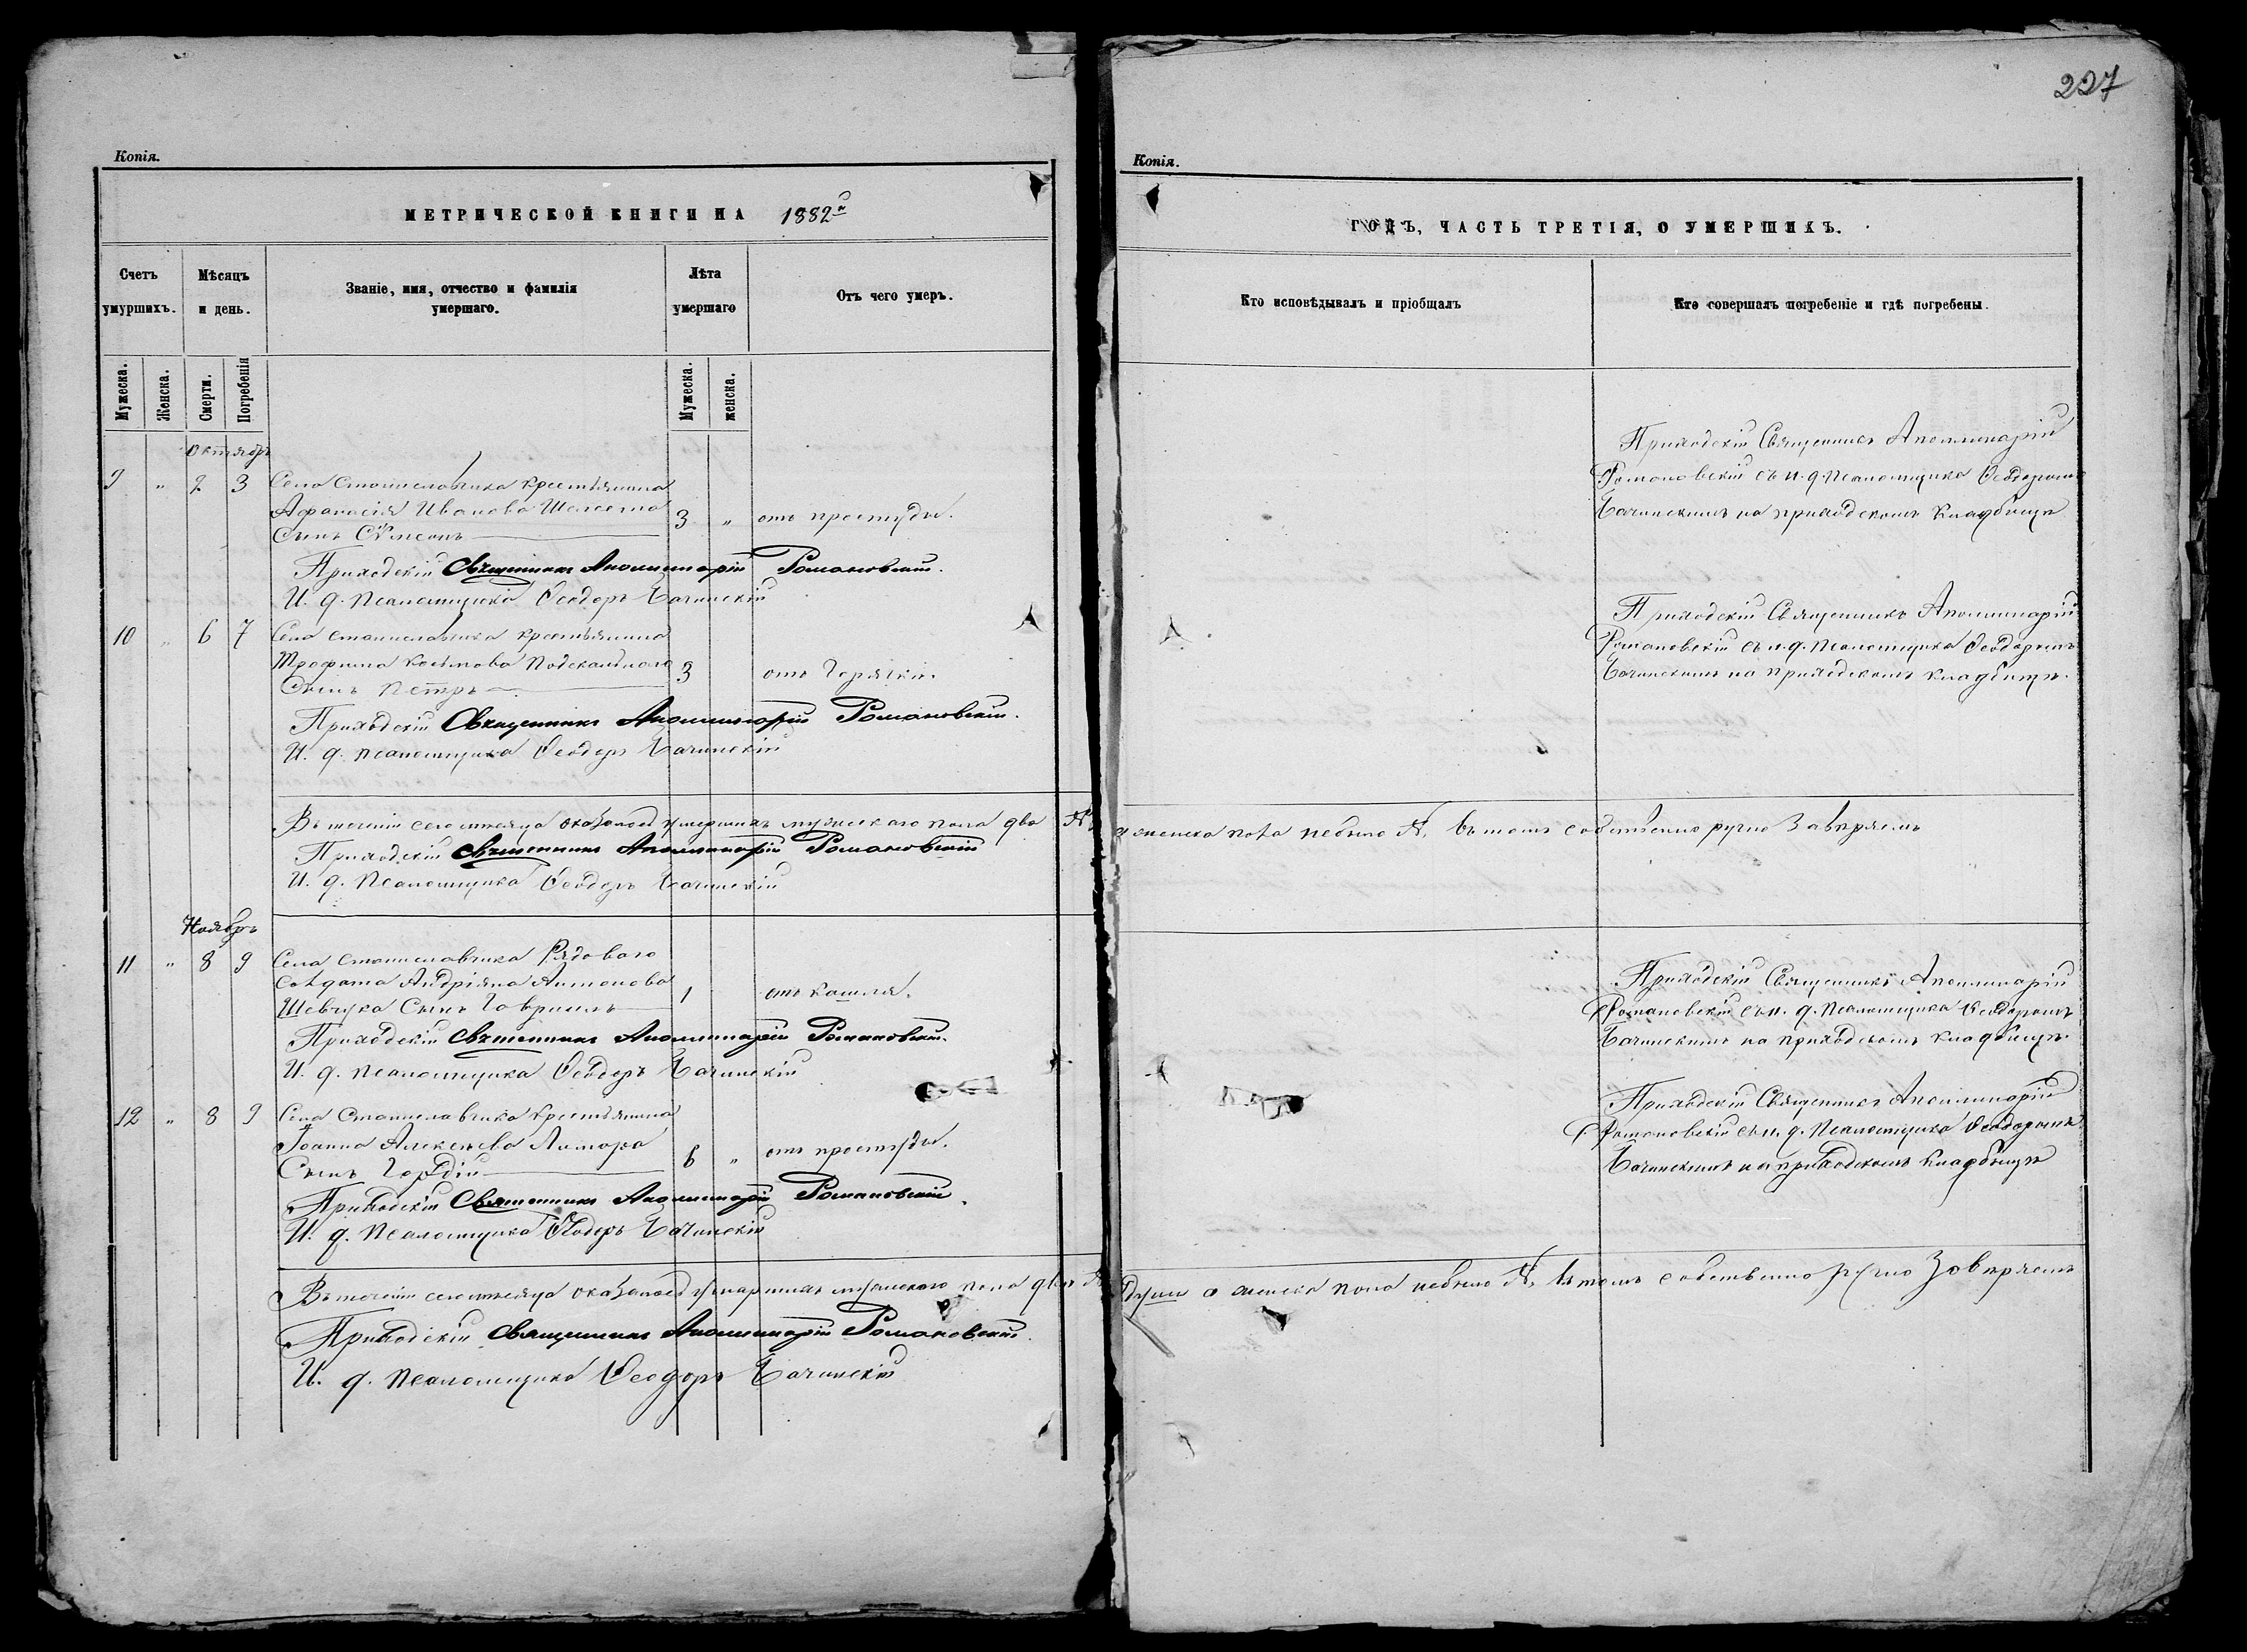 Копія.
МЕТРИЧЕСКОЙ КНИГИ НА 1882 г
Счетъ умуршихъ.
Мѣсяцъ и день.
Званіе, имя, отчество и фамилія умершаго.
Лѣта умершаго
Отъ чего умеръ.
Мужеска.
Женска.
Смерти.
Погребенія
Мужеска.
женска.
Октябрь
9 " 2 3 Села Станиславчика крестьянина
Афанасія Иванова
Сынъ Симеонъ 3 " отъ простуды.
Приходскій Священникъ Аполлинарій Романовскій.
И. д. Псаломщика Ѳеодоръ Бачинскій
10 " 6 7 Села Станиславчика крестьянина
Трофима Косьмова
Сынъ Петръ 3 отъ горячки.
Приходскій Священникъ Аполлинарій Романовскій.
И. д. Псаломщика Ѳеодоръ Бачинскій
Въ теченіи сего мѣсяца оказалось умершихъ мужескаго пола два
Приходскій Священникъ Аполлинарій Романовскій
И. д. Псаломщика Ѳеодоръ Бачинскій
Ноябрь
11 " 8 9 Села Станиславчика Рядоваго
Солдата Андріяна Антонова
Шевчука Сынъ Гавріилъ 1 отъ кашля.
Приходскій Священникъ Аполлинарій Романовскій.
И. д. Псаломщика Ѳеодоръ Бачинскій
12 " 8 9 Села Станиславчика Крестьянина
Іоанна Алексѣева
Сынъ Гордій 6 " отъ простуды.
Приходскій Священникъ Аполлинарій Романовскій.
И. д. Псаломщика Ѳеодоръ Бачинскій
Въ теченіи сего мѣсяца оказалось умершихъ мужескаго пола двѣ
Приходскій Священникъ Аполлинарій Романовскій.
И. д. Псаломщика Ѳеодоръ Бачинскій
227
Копія.
ГОДЪ, ЧАСТЬ ТРЕТІЯ, О УМЕРШИХЪ.
Кто исповѣдывалъ и пріобщалъ
Кто совершалъ погребеніе и гдѣ погребены.
Приходскій Священникъ Аполлинарій
Романовскій съ и. д. Псаломщика Ѳеодоромъ
Бачинскимъ на приходскомъ кладбищѣ
Приходскій Священникъ Аполлинарій
Романовскій съ и. д. Псаломщика Ѳеодоромъ
Бачинскимъ на приходскомъ кладбищѣ.
а женска пола небыло въ томъ собственно ручно Завѣряемъ
Приходскій Священникъ Аполлинарій
Романовскій съ и. д. Псаломщика Ѳеодоромъ
Бачинскимъ на приходскомъ кладбищѣ.
Приходскій Священникъ Аполлинарій
Романовскій съ и. д. Псаломщика Ѳеодоромъ
Бачинскимъ на приходскомъ кладбищѣ
души а женска пола небыло въ томъ собственно ручно Завѣряемъ